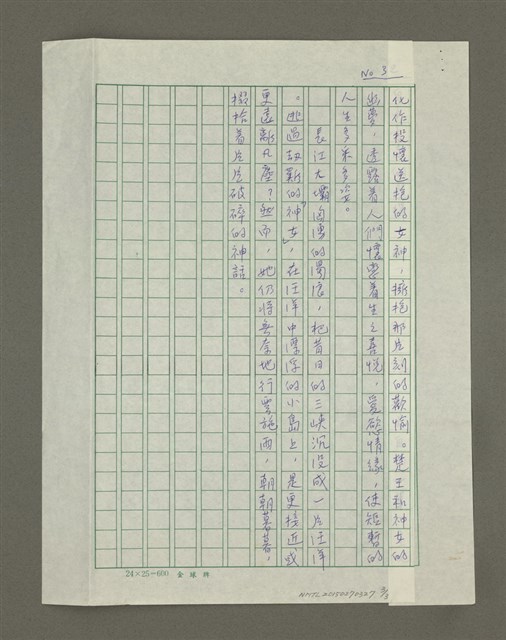 No 3
化作投懷送抱的女神，擁抱那片刻的歡愉。楚王和神女的
幽夢，透露着人們懷戀着生之喜悅，愛慾情緣，使短暫的
人生多釆多姿。
長江大壩的濁浪，把昔日的三峽沉沒成一片汪洋
。逃過劫難的「神女」，在汪洋中漂浮的小島上，是更接近或
更遠離凡塵？然而，她仍將無奈地行雲施雨，朝朝暮暮，
掇拾着片片破碎的神話。
24×25=600 金球牌
NMTL 20150070327 3/3